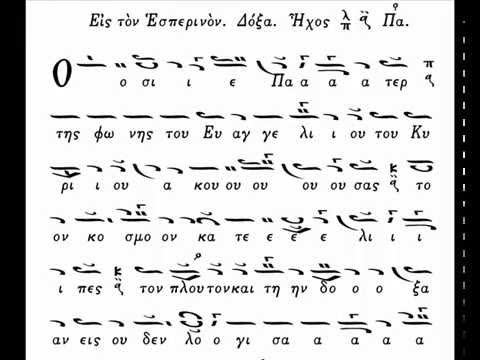 Εἰς τὸν Ἑσπερινόν. Δόξα. Ἦχος λ π ᾳ Πα.
Ο ο σι ι ε Πα α α α τερ π ᾳ
της φω νης του Ευ αγ γε λι ι ου του Κυ
ρι ι ου α κου ου ου ου ου σας κ ᾳ το
ον κο σμο ον κα τε ε ε ε λι ι ι
ι πες κ ᾳ τον πλου τον και τη ην δο ο ο ξα
αν εις ου δεν λο ο γι σα α α α α